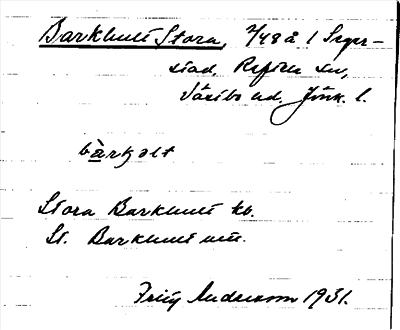 Barkhult Stora, 7/48 å 1
Reftele sn,
Västbo hd. Jönk. l.
bàrkolt
Stora Barkhult kb.
St. Barkhult
Fritz Andersson 1931.